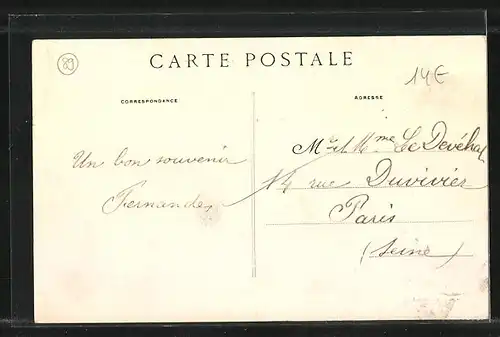 89
CARTE POSTALE
14€
CORRESPONDANCE
ADRESSE
Mr et Mme Le Devéhat
Un bon souvenir
14 rue Duvivier
Fernande
Paris
(Seine)